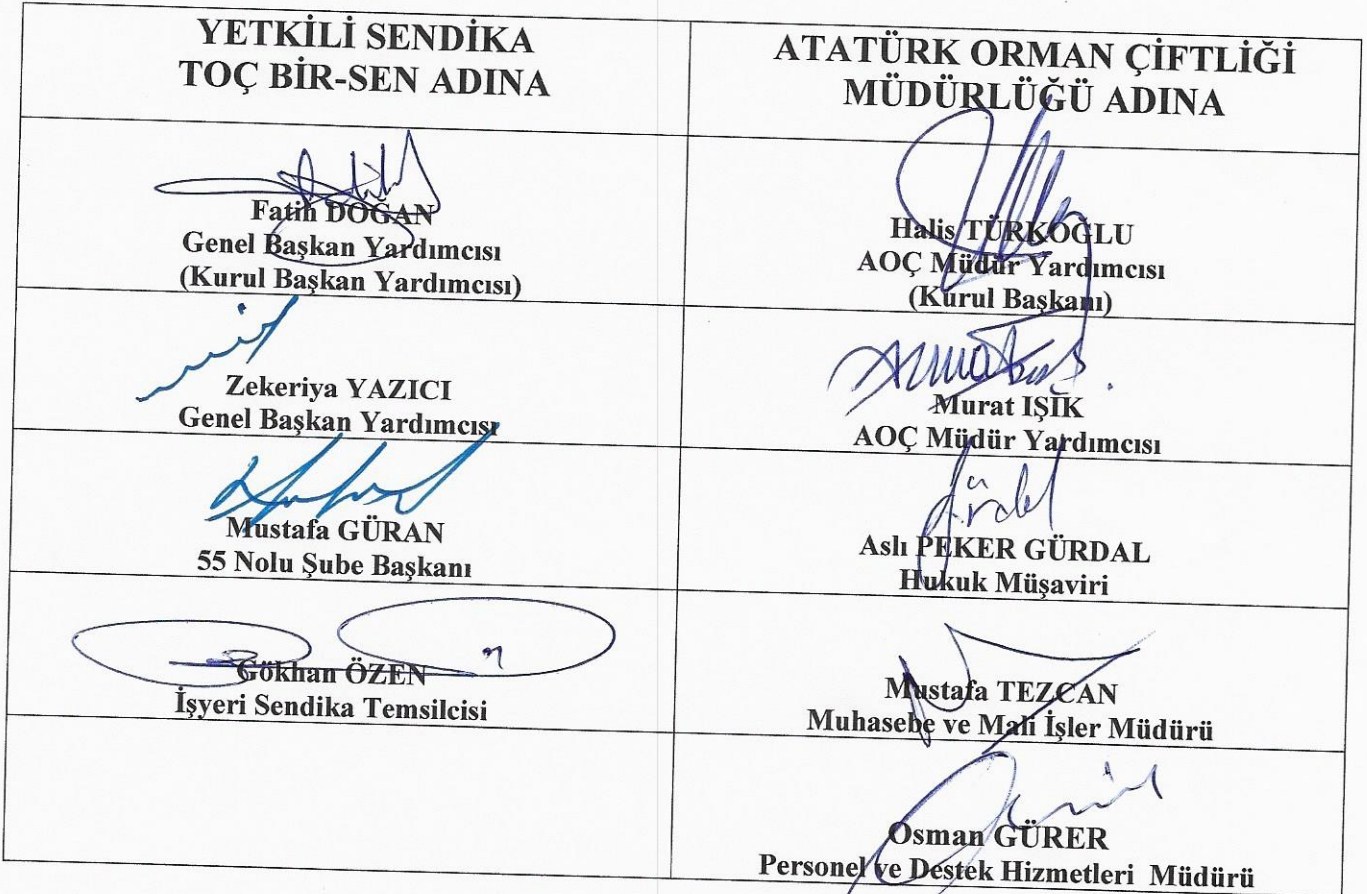 YETKİLİ SENDİKA
TOÇ BİR-SEN ADINA
ATATÜRK ORMAN ÇİFTLİĞİ
MÜDÜRLÜĞÜ ADINA
Fatih DOĞAN
Genel Başkan Yardımcısı
(Kurul Başkan Yardımcısı)
Halis TÜRKOĞLU
AOÇ Müdür Yardımcısı
(Kurul Başkanı)
Zekeriya YAZICI
Genel Başkan Yardımcısı
Murat IŞIK
AOÇ Müdür Yardımcısı
Mustafa GÜRAN
55 Nolu Şube Başkanı
Aslı PEKER GÜRDAL
Hukuk Müşaviri
Gökhan ÖZEN
İşyeri Sendika Temsilcisi
Mustafa TEZCAN
Muhasebe ve Mali İşler Müdürü
Osman GÜRER
Personel ve Destek Hizmetleri Müdürü